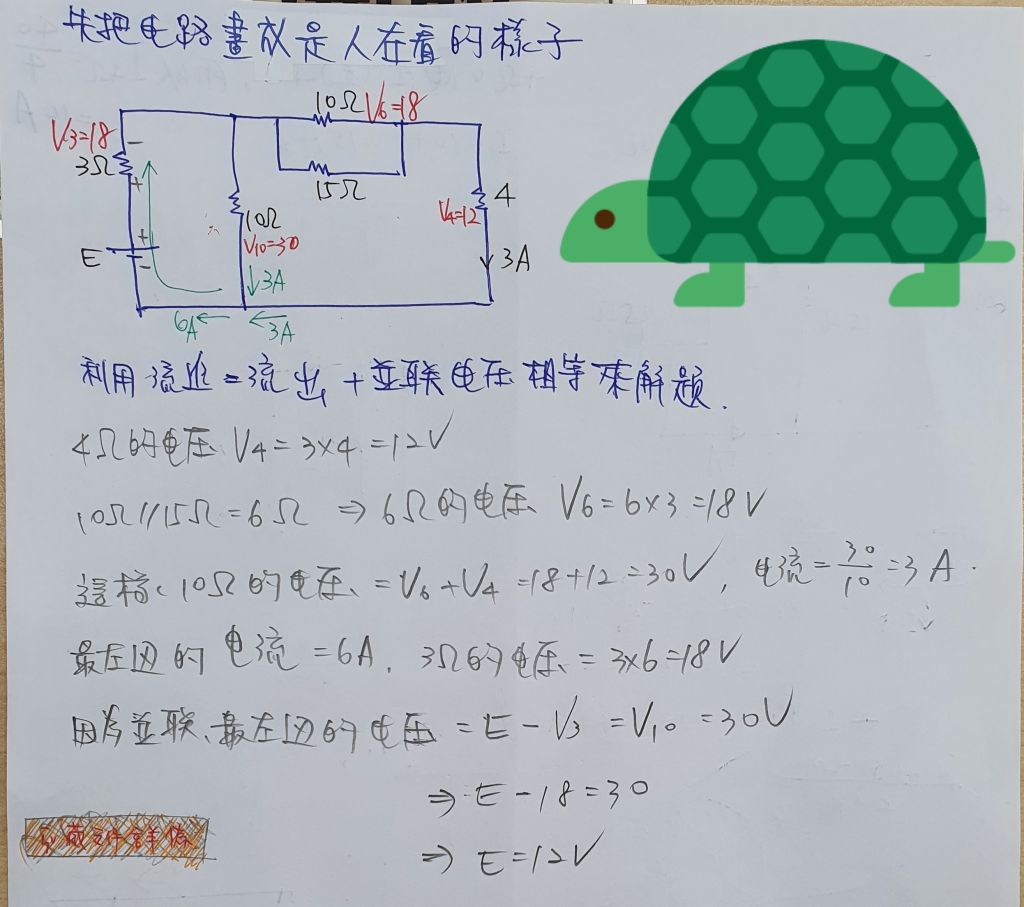 先把电路畫成是人在看的樣子
10Ω V6=18
V3=18
3Ω
15Ω
4
10Ω
V4=12
V10=30
E
3A
3A
6A
3A
利用流进=流出+並联电压相等來解题.
4Ω的电压 V4=3×4=12V
10Ω//15Ω=6Ω ⇒ 6Ω的电压 V6=6×3=18V
這樣、10Ω的电压、=V6+V4=18+12=30V, 电流=30/10=3A.
最左边的电流=6A. 3Ω的电压=3×6=18V
因为並联、最左边的电压=E-V3=V10=30V
⇒ E-18=30
⇒ E=12V